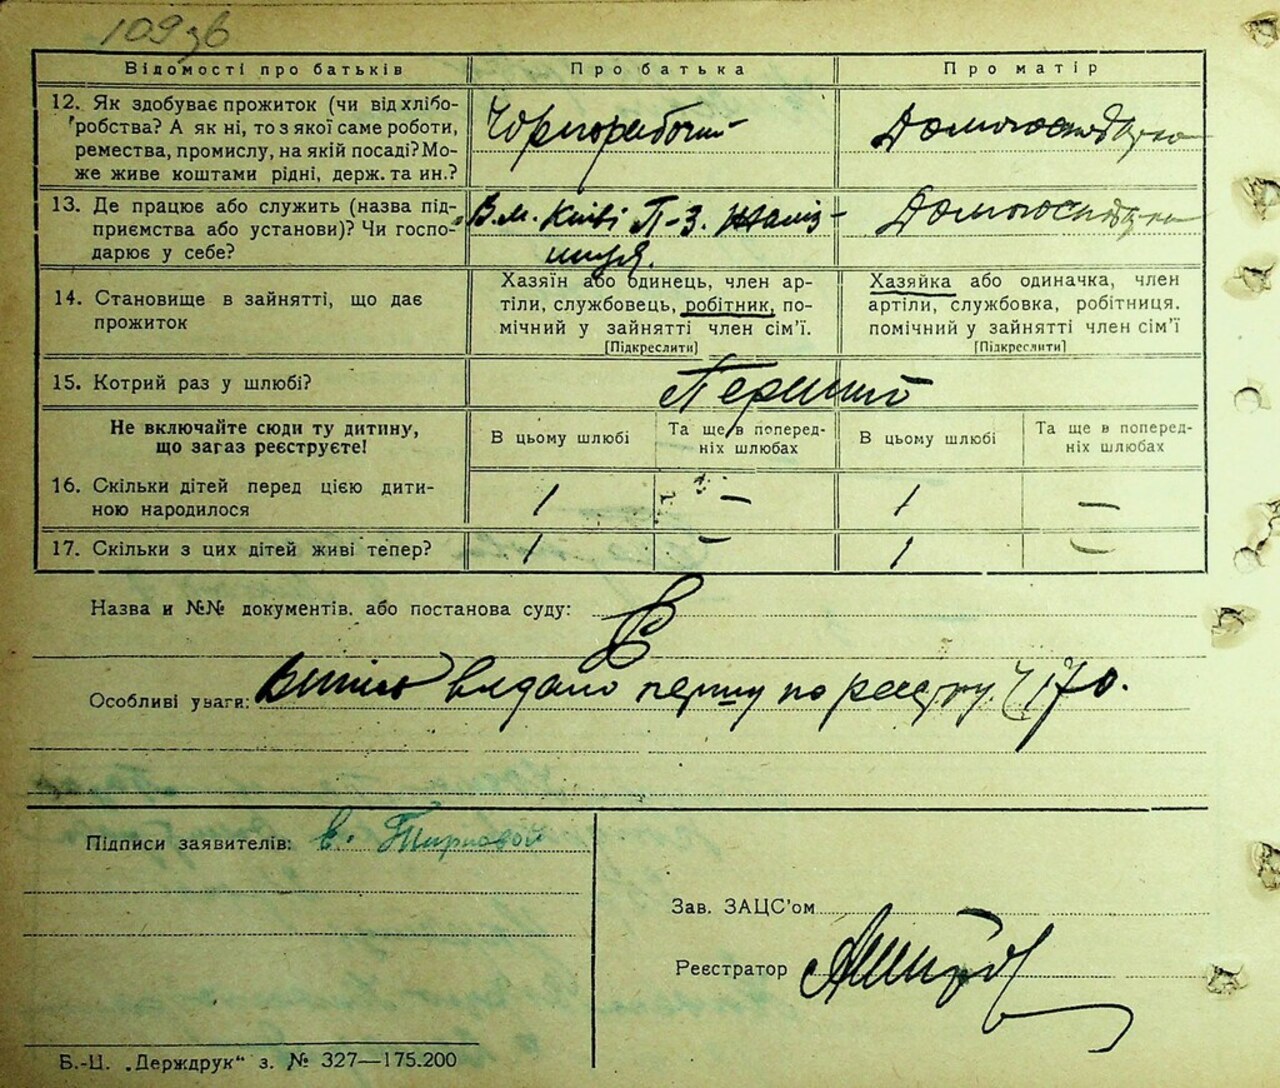 109зв
Відомості про батьків Про батька Про матір
12. Як здобуває прожиток (чи від хлібо-
робства? А як ні, то з якої саме роботи,
ремества, промислу, на якій посаді? Мо-
же живе коштами рідні, держ. та ин.?
Чорноробочий
Домогосподарка
13. Де працює або служить (назва під-
приємства або установи)? Чи госпо-
дарює у себе?
В м. Київі П-З. Заліз-
ниця.
Домогосподарка
14. Становище в зайнятті, що дає
прожиток
Хазяїн або одинець, член ар-
тіли, службовець, робітник, по-
мічний у зайнятті член сім'ї.
[Підкреслити]
Хазяйка або одиначка, член
артіли, службовка, робітниця.
помічний у зайнятті член сім'ї
[Підкреслити]
15. Котрий раз у шлюбі?
Перший
Не включайте сюди ту дитину,
що загаз реєструєте!
В цьому шлюбі
Та ще в поперед-
ніх шлюбах
В цьому шлюбі
Та ще в поперед-
ніх шлюбах
16. Скільки дітей перед цією дити-
ною народилося
1 — 1 —
17. Скільки з цих дітей живі тепер?
1 — 1 —
Назва и №№ документів. або постанова суду:
Особливі уваги: видано першу по реєстру
Підписи заявителів:
Зав. ЗАЦС'ом
Реєстратор
Б.-Ц. „Держдрук“ з. № 327—175.200